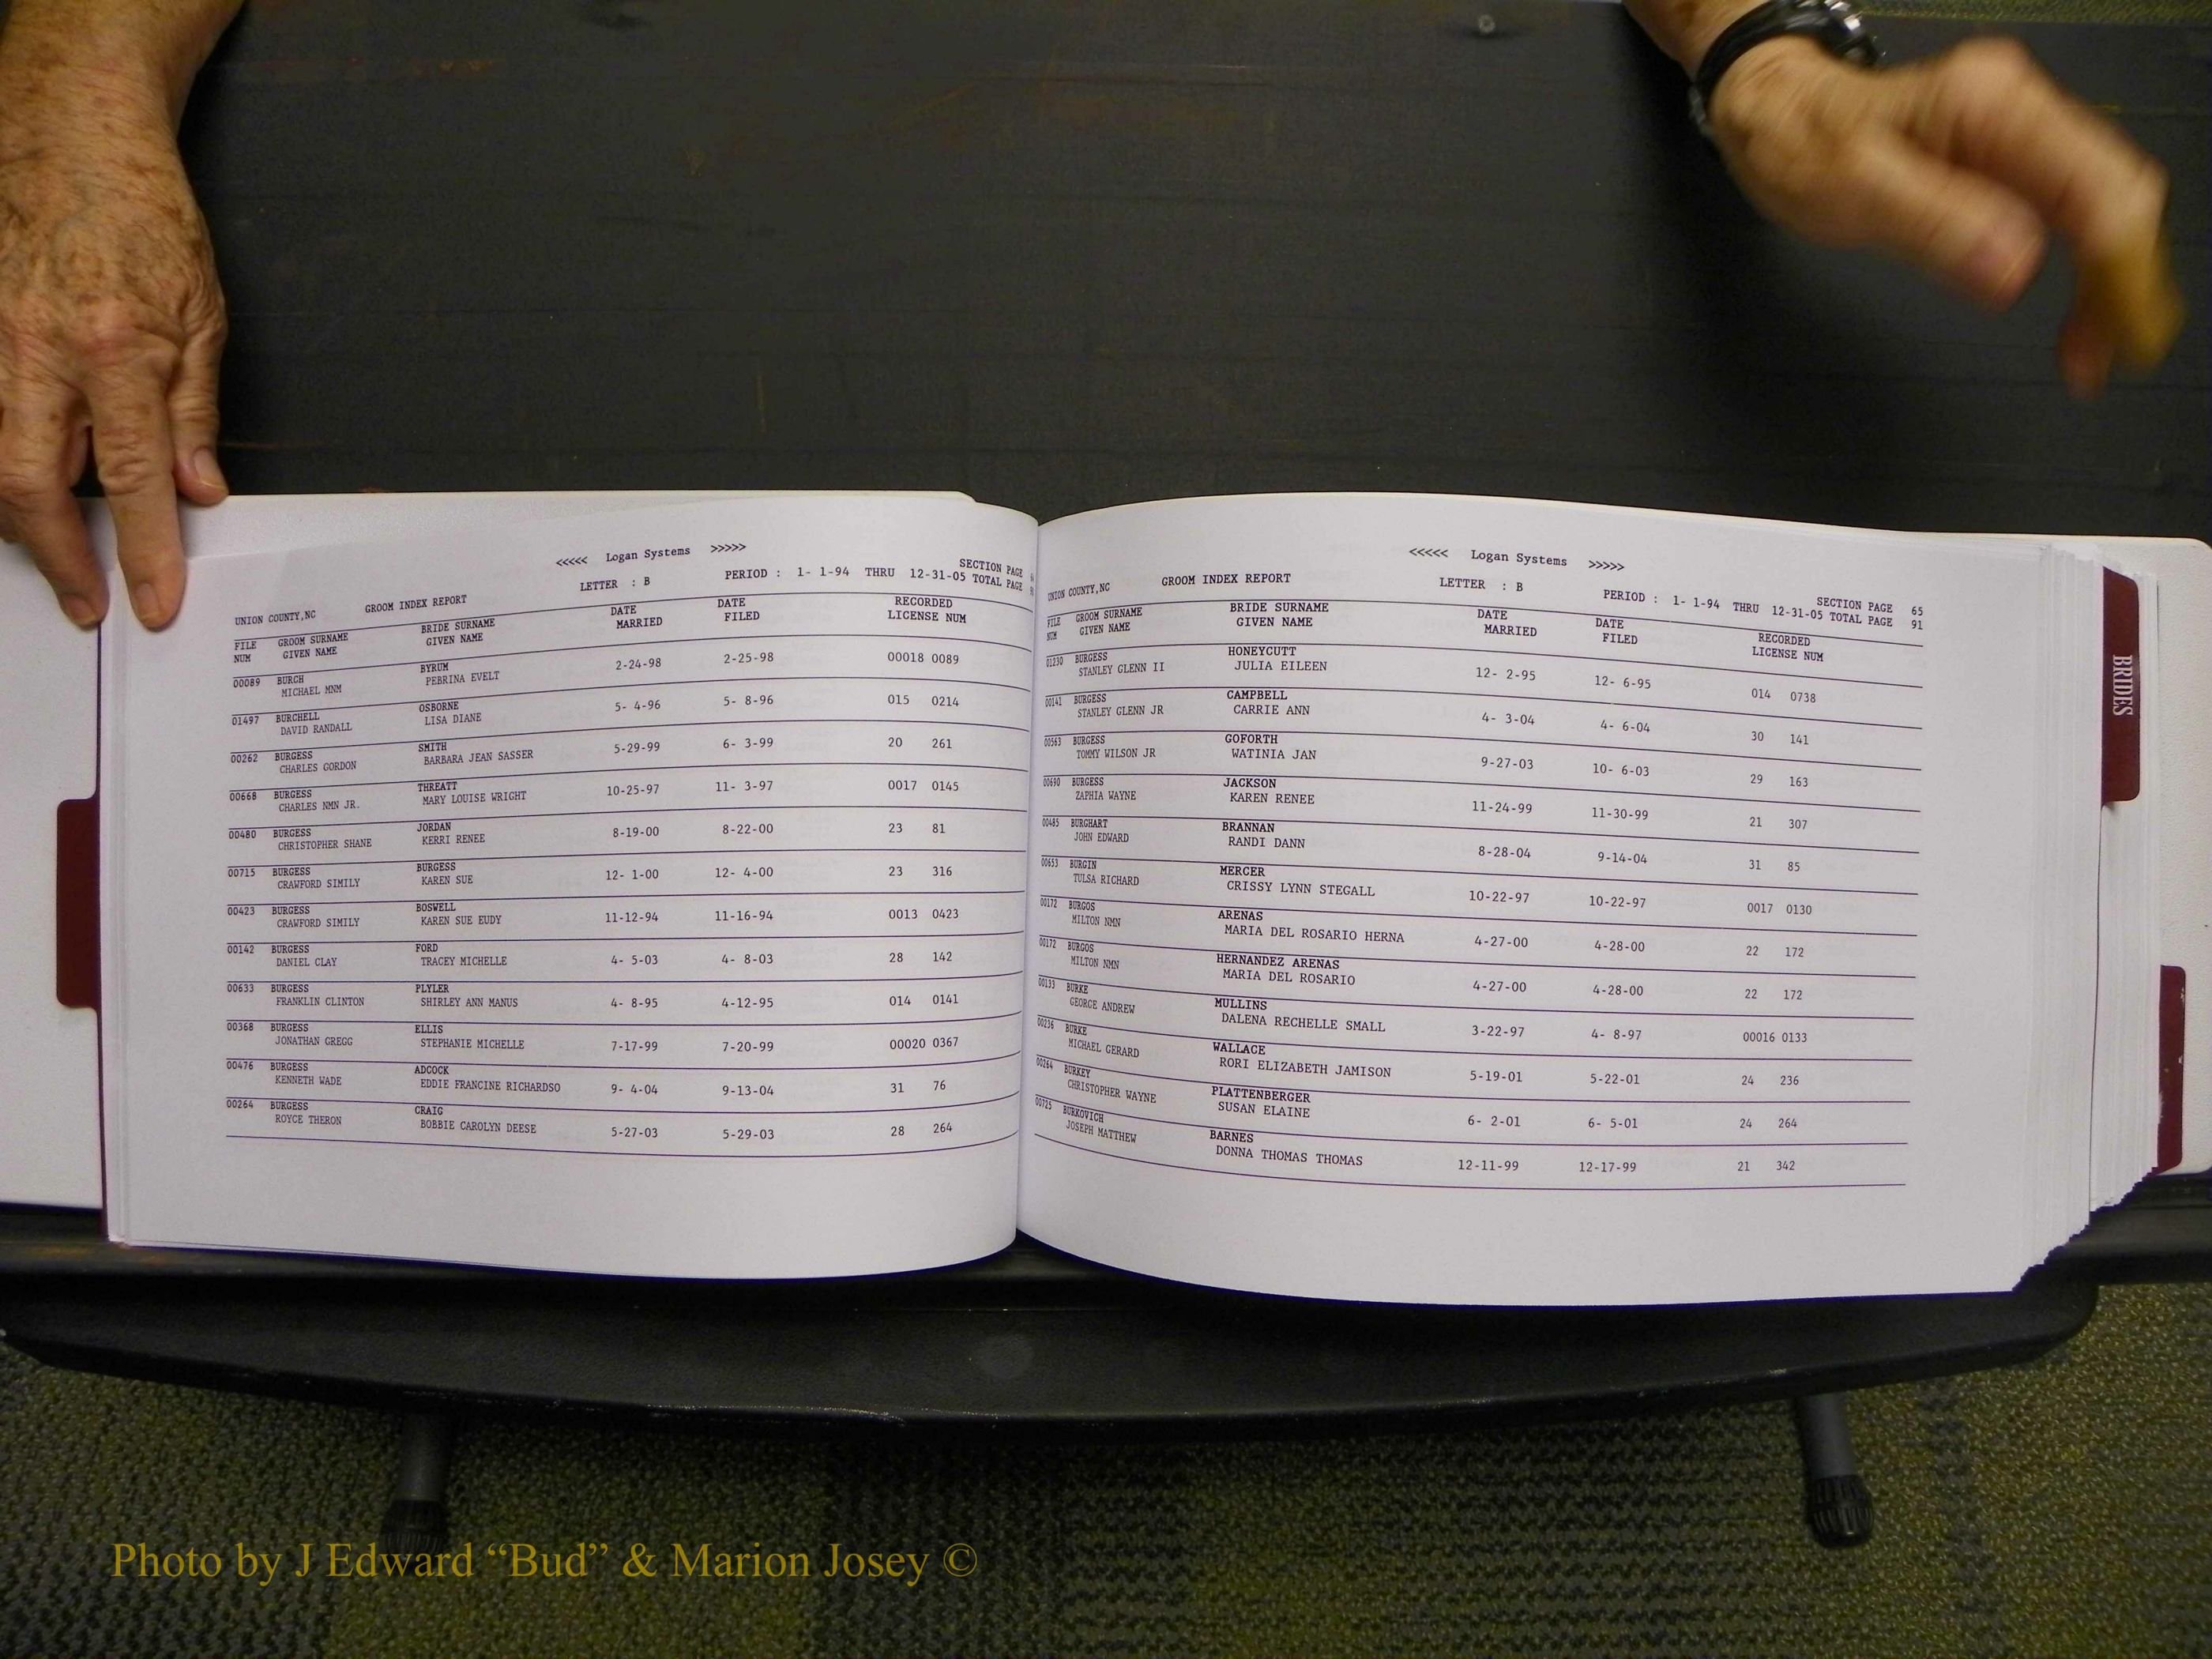 <<<<< Logan Systems >>>>>
SECTION PAGE
UNION COUNTY,NC GROOM INDEX REPORT LETTER : B PERIOD : 1- 1-94 THRU 12-31-05 TOTAL PAGE
FILE GROOM SURNAME BRIDE SURNAME DATE DATE RECORDED
NUM GIVEN NAME GIVEN NAME MARRIED FILED LICENSE NUM
00089 BURCH BYRUM 2-24-98 2-25-98 00018 0089
MICHAEL MNM PEBRINA EVELT
01497 BURCHELL OSBORNE 5- 4-96 5- 8-96 015 0214
DAVID RANDALL LISA DIANE
00262 BURGESS SMITH 5-29-99 6- 3-99 20 261
CHARLES GORDON BARBARA JEAN SASSER
00668 BURGESS THREATT 10-25-97 11- 3-97 0017 0145
CHARLES NMN JR. MARY LOUISE WRIGHT
00480 BURGESS JORDAN 8-19-00 8-22-00 23 81
CHRISTOPHER SHANE KERRI RENEE
00715 BURGESS BURGESS 12- 1-00 12- 4-00 23 316
CRAWFORD SIMILY KAREN SUE
00423 BURGESS BOSWELL 11-12-94 11-16-94 0013 0423
CRAWFORD SIMILY KAREN SUE EUDY
00142 BURGESS FORD 4- 5-03 4- 8-03 28 142
DANIEL CLAY TRACEY MICHELLE
00633 BURGESS PLYLER 4- 8-95 4-12-95 014 0141
FRANKLIN CLINTON SHIRLEY ANN MANUS
00368 BURGESS ELLIS 7-17-99 7-20-99 00020 0367
JONATHAN GREGG STEPHANIE MICHELLE
00476 BURGESS ADCOCK 9- 4-04 9-13-04 31 76
KENNETH WADE EDDIE FRANCINE RICHARDSO
00264 BURGESS CRAIG 5-27-03 5-29-03 28 264
ROYCE THERON BOBBIE CAROLYN DEESE
<<<<< Logan Systems >>>>>
SECTION PAGE 65
UNION COUNTY,NC GROOM INDEX REPORT LETTER : B PERIOD : 1- 1-94 THRU 12-31-05 TOTAL PAGE 91
FILE GROOM SURNAME BRIDE SURNAME DATE DATE RECORDED
NUM GIVEN NAME GIVEN NAME MARRIED FILED LICENSE NUM
01230 BURGESS HONEYCUTT 12- 2-95 12- 6-95 014 0738
STANLEY GLENN II JULIA EILEEN
00141 BURGESS CAMPBELL 4- 3-04 4- 6-04 30 141
STANLEY GLENN JR CARRIE ANN
00563 BURGESS GOFORTH 9-27-03 10- 6-03 29 163
TOMMY WILSON JR WATINIA JAN
00690 BURGESS JACKSON 11-24-99 11-30-99 21 307
ZAPHIA WAYNE KAREN RENEE
00485 BURGHART BRANNAN 8-28-04 9-14-04 31 85
JOHN EDWARD RANDI DANN
00653 BURGIN MERCER 10-22-97 10-22-97 0017 0130
TULSA RICHARD CRISSY LYNN STEGALL
00172 BURGOS ARENAS 4-27-00 4-28-00 22 172
MILTON NMN MARIA DEL ROSARIO HERNA
00172 BURGOS HERNANDEZ ARENAS 4-27-00 4-28-00 22 172
MILTON NMN MARIA DEL ROSARIO
00133 BURKE MULLINS 3-22-97 4- 8-97 00016 0133
GEORGE ANDREW DALENA RECHELLE SMALL
00236 BURKE WALLACE 5-19-01 5-22-01 24 236
MICHAEL GERARD RORI ELIZABETH JAMISON
00264 BURKEY PLATTENBERGER 6- 2-01 6- 5-01 24 264
CHRISTOPHER WAYNE SUSAN ELAINE
00725 BURKOVICH BARNES 12-11-99 12-17-99 21 342
JOSEPH MATTHEW DONNA THOMAS THOMAS
BRIDES
Photo by J Edward “Bud” & Marion Josey ©